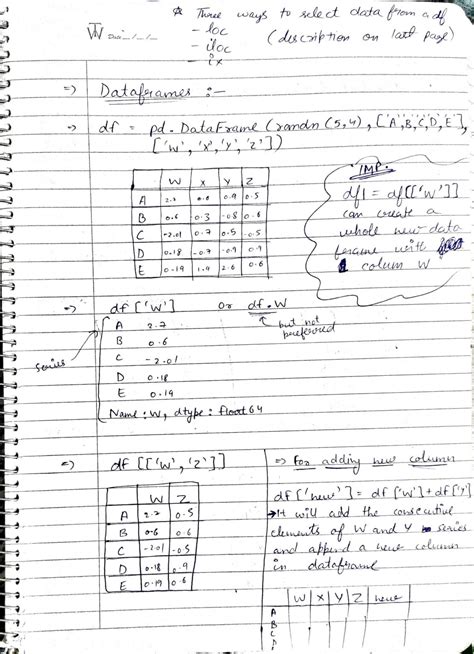 * Three ways to select data from a df
- loc (description on last page)
- iloc
- ix
=> Dataframes :-
-> df = pd. DataFrame (randn (5,4), ['A', 'B', 'C', 'D', 'E'],
['W', 'X', 'Y', 'Z'])
W X Y Z
A 2.7 0.6 0.9 0.5
B 0.6 0.3 -0.8 0.6
C -2.01 0.7 0.5 -0.5
D 0.18 -0.7 -0.9 0.9
E 0.19 1.9 2.6 0.6
IMP.
df1 = df[['W']]
can create a
whole new data
frame with
colum W
-> df ['W'] or df.W
but not
preferred
series
A 2.7
B 0.6
C -2.01
D 0.18
E 0.19
Name : W, dtype : float 64
=> df [['W', 'Z']]
W Z
A 2.7 0.5
B 0.6 0.6
C -2.01 -0.5
D 0.18 0.9
E 0.19 0.6
=> For adding new column
df ['new'] = df ['W'] + df ['Y']
-> It will add the consecutive
elements of W and Y series
and append a new column
in dataframe
W X Y Z new
A
B
C
D